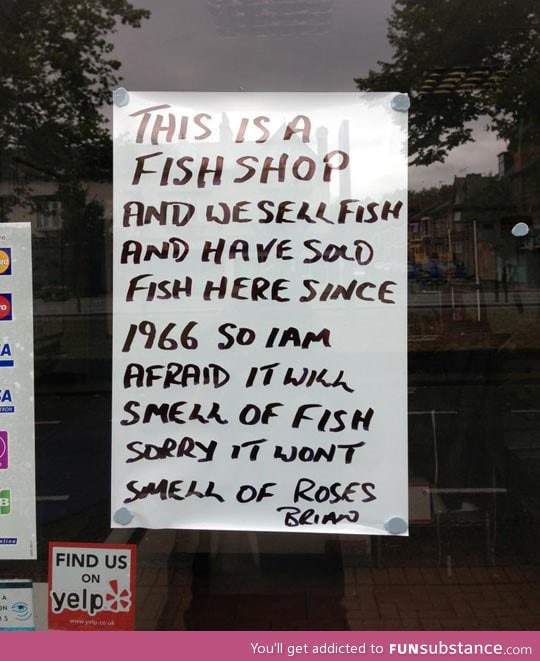 THIS IS A
FISH SHOP
AND WE SELL FISH
AND HAVE SOLD
FISH HERE SINCE
1966 SO I AM
AFRAID IT WILL
SMELL OF FISH
SORRY IT WONT
SMELL OF ROSES
BRIAN
FIND US
ON
yelp
www.yelp.co.uk
You'll get addicted to FUNsubstance.com